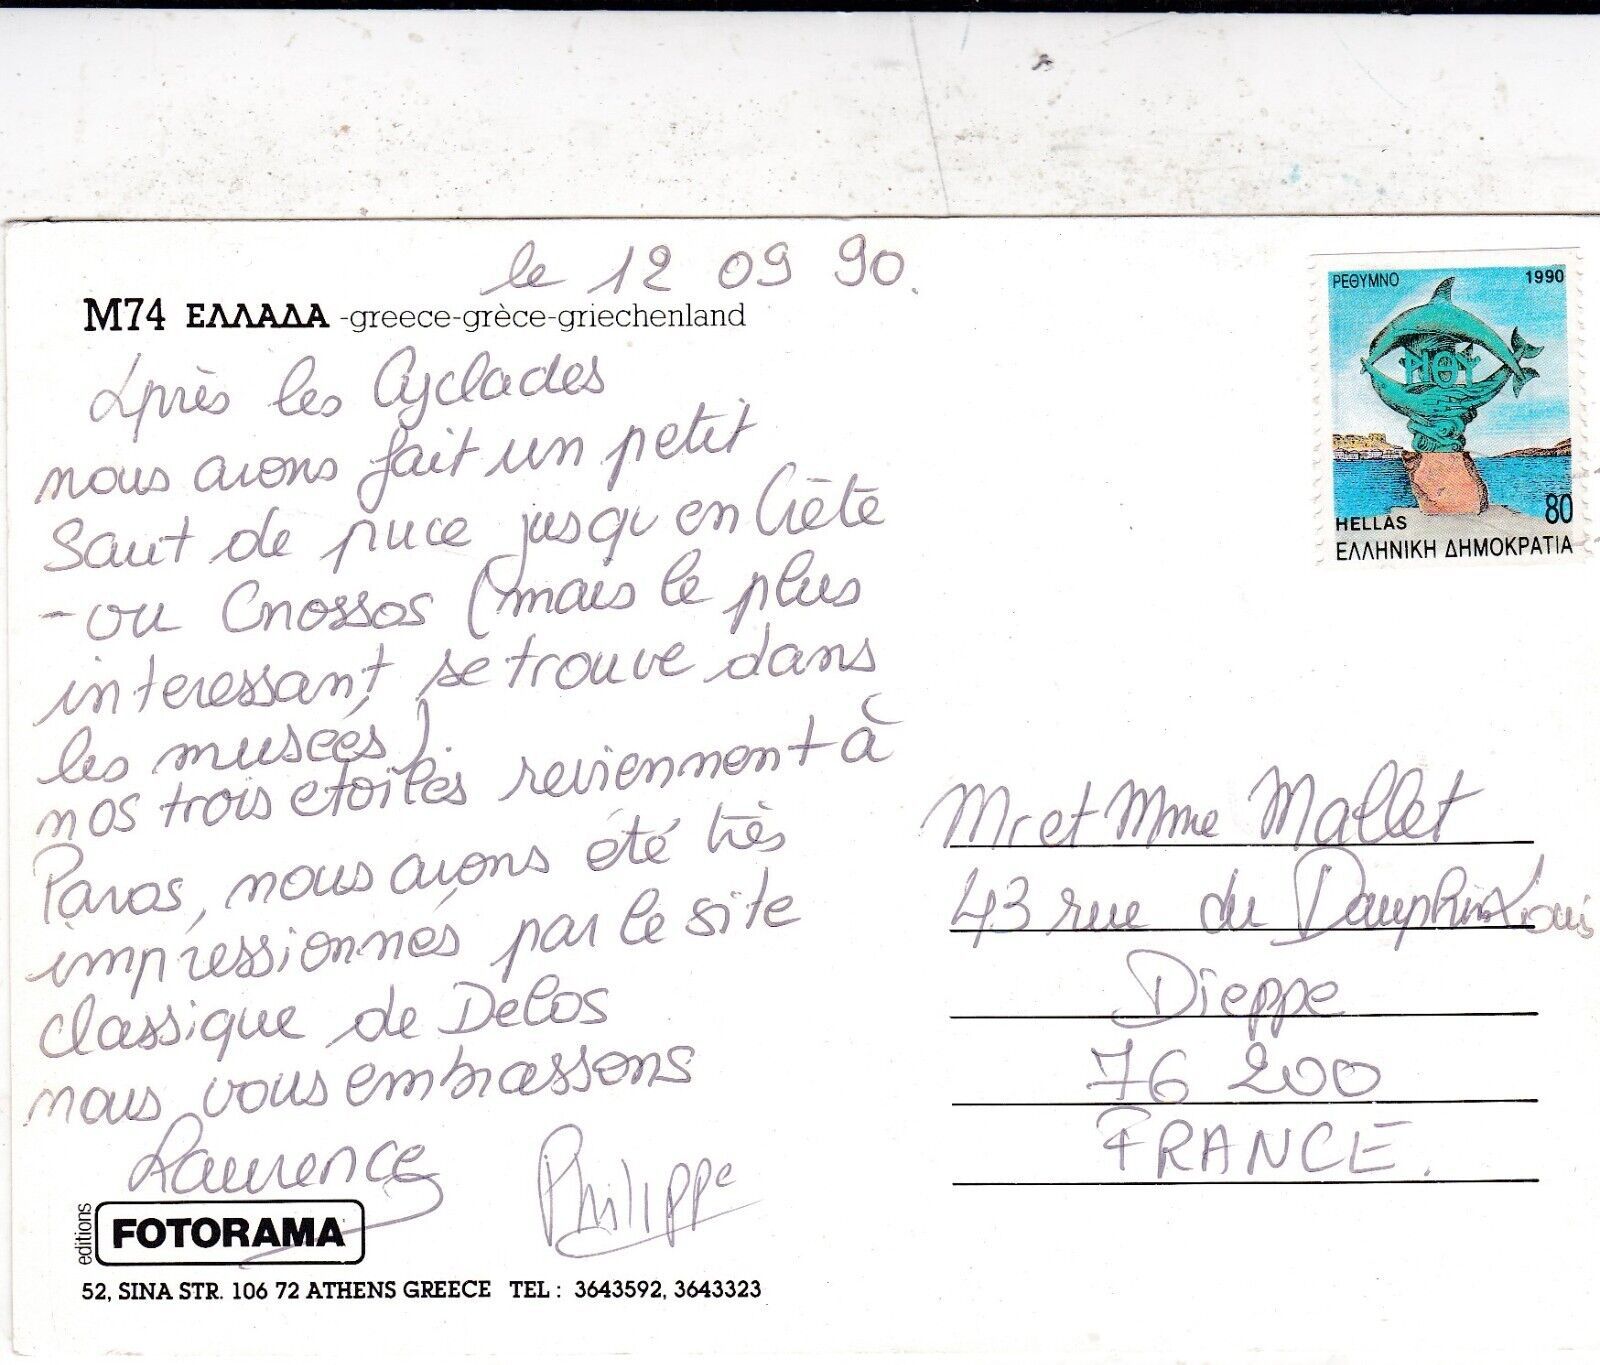 le 12 09 90.
M74 ΕΛΛΑΔΑ -greece-grèce-griechenland
Après les Cyclades
nous avons fait un petit
saut de puce jusqu'en Crète
- ou Cnossos (mais le plus
interessant, se trouve dans
les musées).
nos trois etoiles reviennent à
Paros, nous avons été très
impressionnés par le site
classique de Delos
nous vous embrassons
Laurence Philippe
editions FOTORAMA
52, SINA STR. 106 72 ATHENS GREECE TEL : 3643592, 3643323
ΡΕΘΥΜΝΟ 1990
ΡΙΘΥ
80
HELLAS
ΕΛΛΗΝΙΚΗ ΔΗΜΟΚΡΑΤΙΑ
Mr et Mme Mallet
43 rue du Dauphin Louis
Dieppe
76 200
FRANCE.